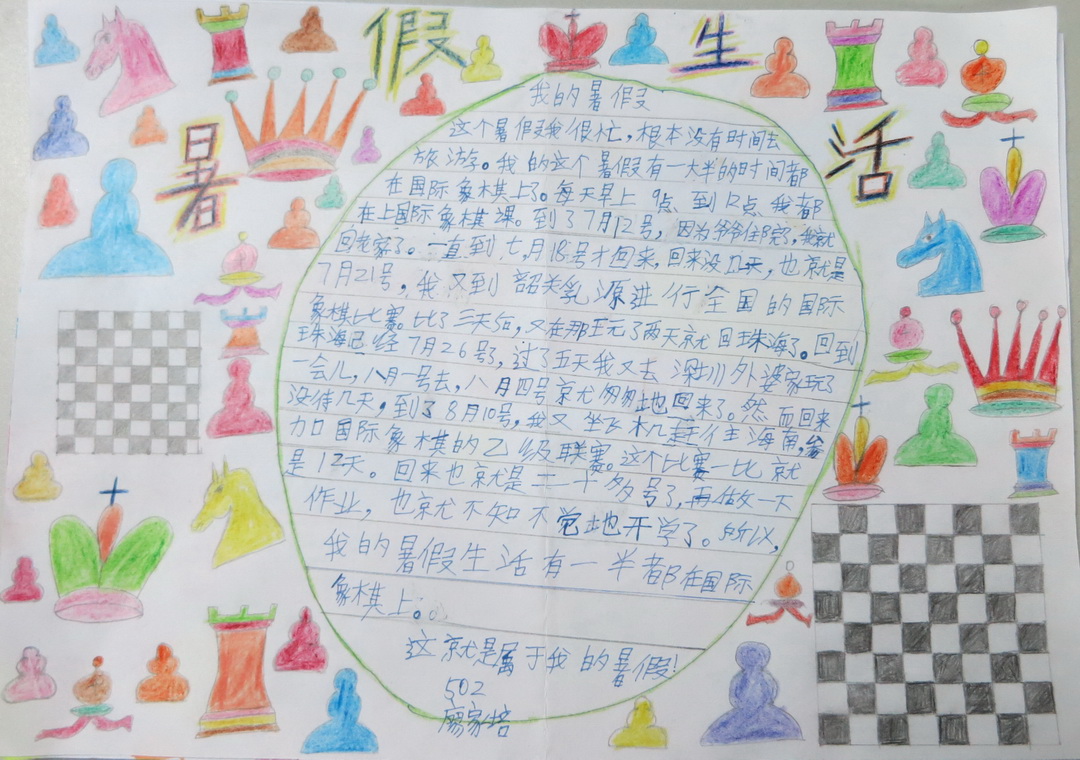 暑假生活
我的暑假
这个暑假我很忙，根本没有时间去
旅游。我的这个暑假有一大半的时间都
在国际象棋上了。每天早上9点到12点我都
在上国际象棋课。到了7月12号，因为爷爷住院了，我就
回老家了。一直到七月18号才回来，回来没几天，也就是
7月21号，我又到韶关乳源进行全国的国际
象棋比赛。比了三天后，又在那玩了两天就回珠海了。回到
珠海已经7月26号了，过了五天我又去深圳外婆家玩了
一会儿，八月一号去，八月四号就匆匆地回来了。然而回来
没待几天，到了8月10号，我又坐飞机去往海南，参
加国际象棋的乙级联赛。这个比赛一比就
是12天。回来也就是二十多号了，再做一下
作业，也就不知不觉地开学了。所以，
我的暑假生活有一半都在国际
象棋上。
这就是属于我的暑假！
502
廖家培